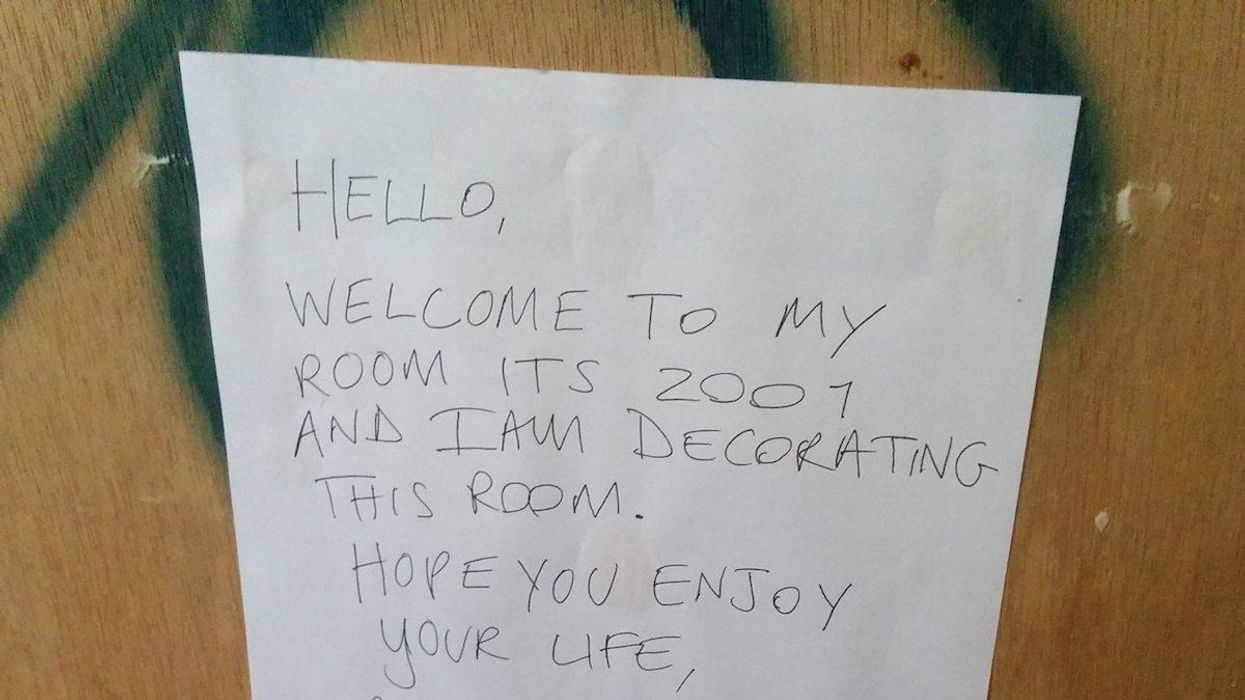 HELLO,
WELCOME TO MY
ROOM ITS 2001
AND I AM DECORATING
THIS ROOM.
HOPE YOU ENJOY
YOUR LIFE,